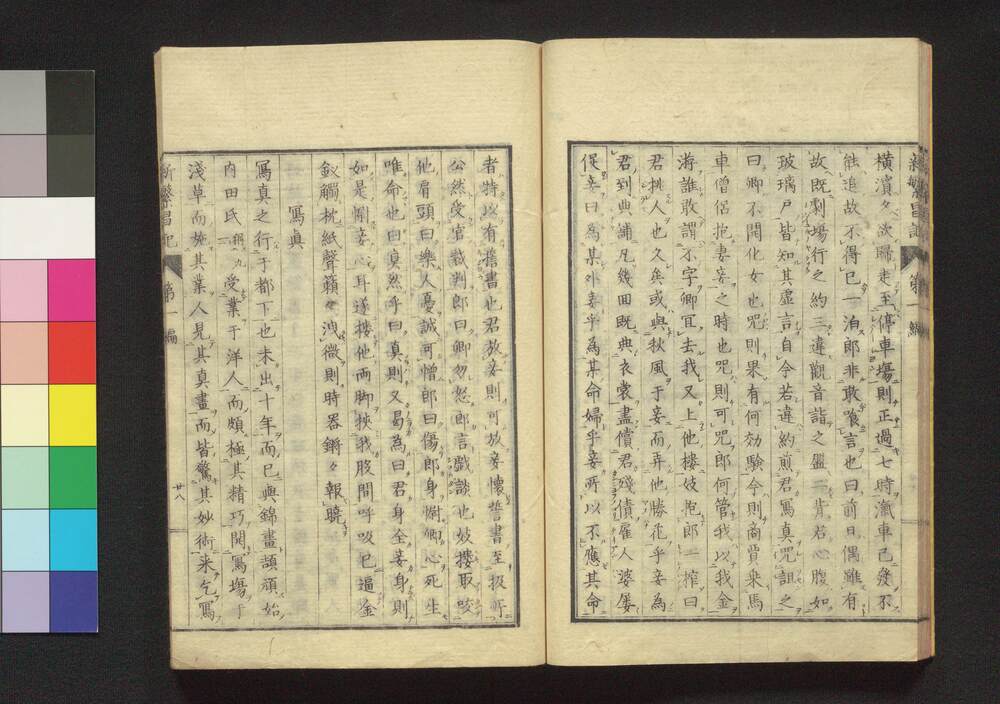 横濱々々欲歸走至停車塲則正過七時瀛車已發不
能追故不得已一泊郎非敢飡言也曰前日偶雖有
故既劇塲行之約三違觀音詣之盟二背若心腹如
玻璃戸皆知其虚言自今若違約煎君寫真咒詛之
曰卿不聞化女也咒則果有何効驗今則商賈乘馬
車僧侶抱妻妾之時也咒則可咒郎何管我以我金
游誰敢謂不字卿宜去我又上他樓妓抱郎一搾曰
君挑人也久矣或與秋風于妾而弄他勝花乎妾為
君到典舗凡幾回既典衣裳盡償君殘債雇人婆屡
促妾曰為某外妾乎為某命婦乎妾所以不應其命
者特以有舊書也君放妾則可放妾懷誓書至扱所
公然受官裁判郎曰卿勿怒郎言戯談也妓摟取咬
他肩頭曰樂人憂誠可憎郎曰傷郎身慰卿心死生
唯命也曰真然乎曰真則又曷為曰君身全妾身則
如是慰妾心耳遂摟他両脚挾我股間呼吸已逼金
釵觸枕紙聲籟々洩微則時器鏘々報曉
寫真
寫真之行于都下也未出十年而已與錦畫頡頏始
内田氏稱九一受業于洋人而頗極其精巧開寫塲于
淺草而施其業人見其真畫而皆驚其妙術来乞寫
新繁昌記
第一編
廿八